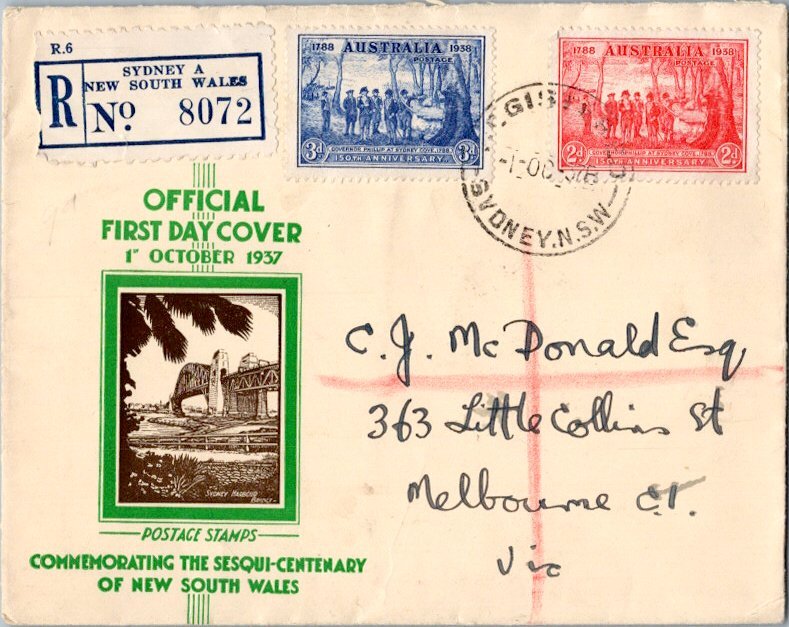 R.6
SYDNEY A
NEW SOUTH WALES
R No 8072
1788 AUSTRALIA 1938
POSTAGE
GOVERNOR PHILLIP AT SYDNEY COVE, 1788.
3d 150TH ANNIVERSARY 3d
1788 AUSTRALIA 1938
POSTAGE
GOVERNOR PHILLIP AT SYDNEY COVE, 1788.
2d 150TH ANNIVERSARY 2d
SYDNEY.N.S.W
OFFICIAL
FIRST DAY COVER
1ST OCTOBER 1937
SYDNEY HARBOUR
BRIDGE
POSTAGE STAMPS
COMMEMORATING THE SESQUI-CENTENARY
OF NEW SOUTH WALES
C. J. McDonald Esq
363 Little Collins St
Melbourne C.1.
Vic